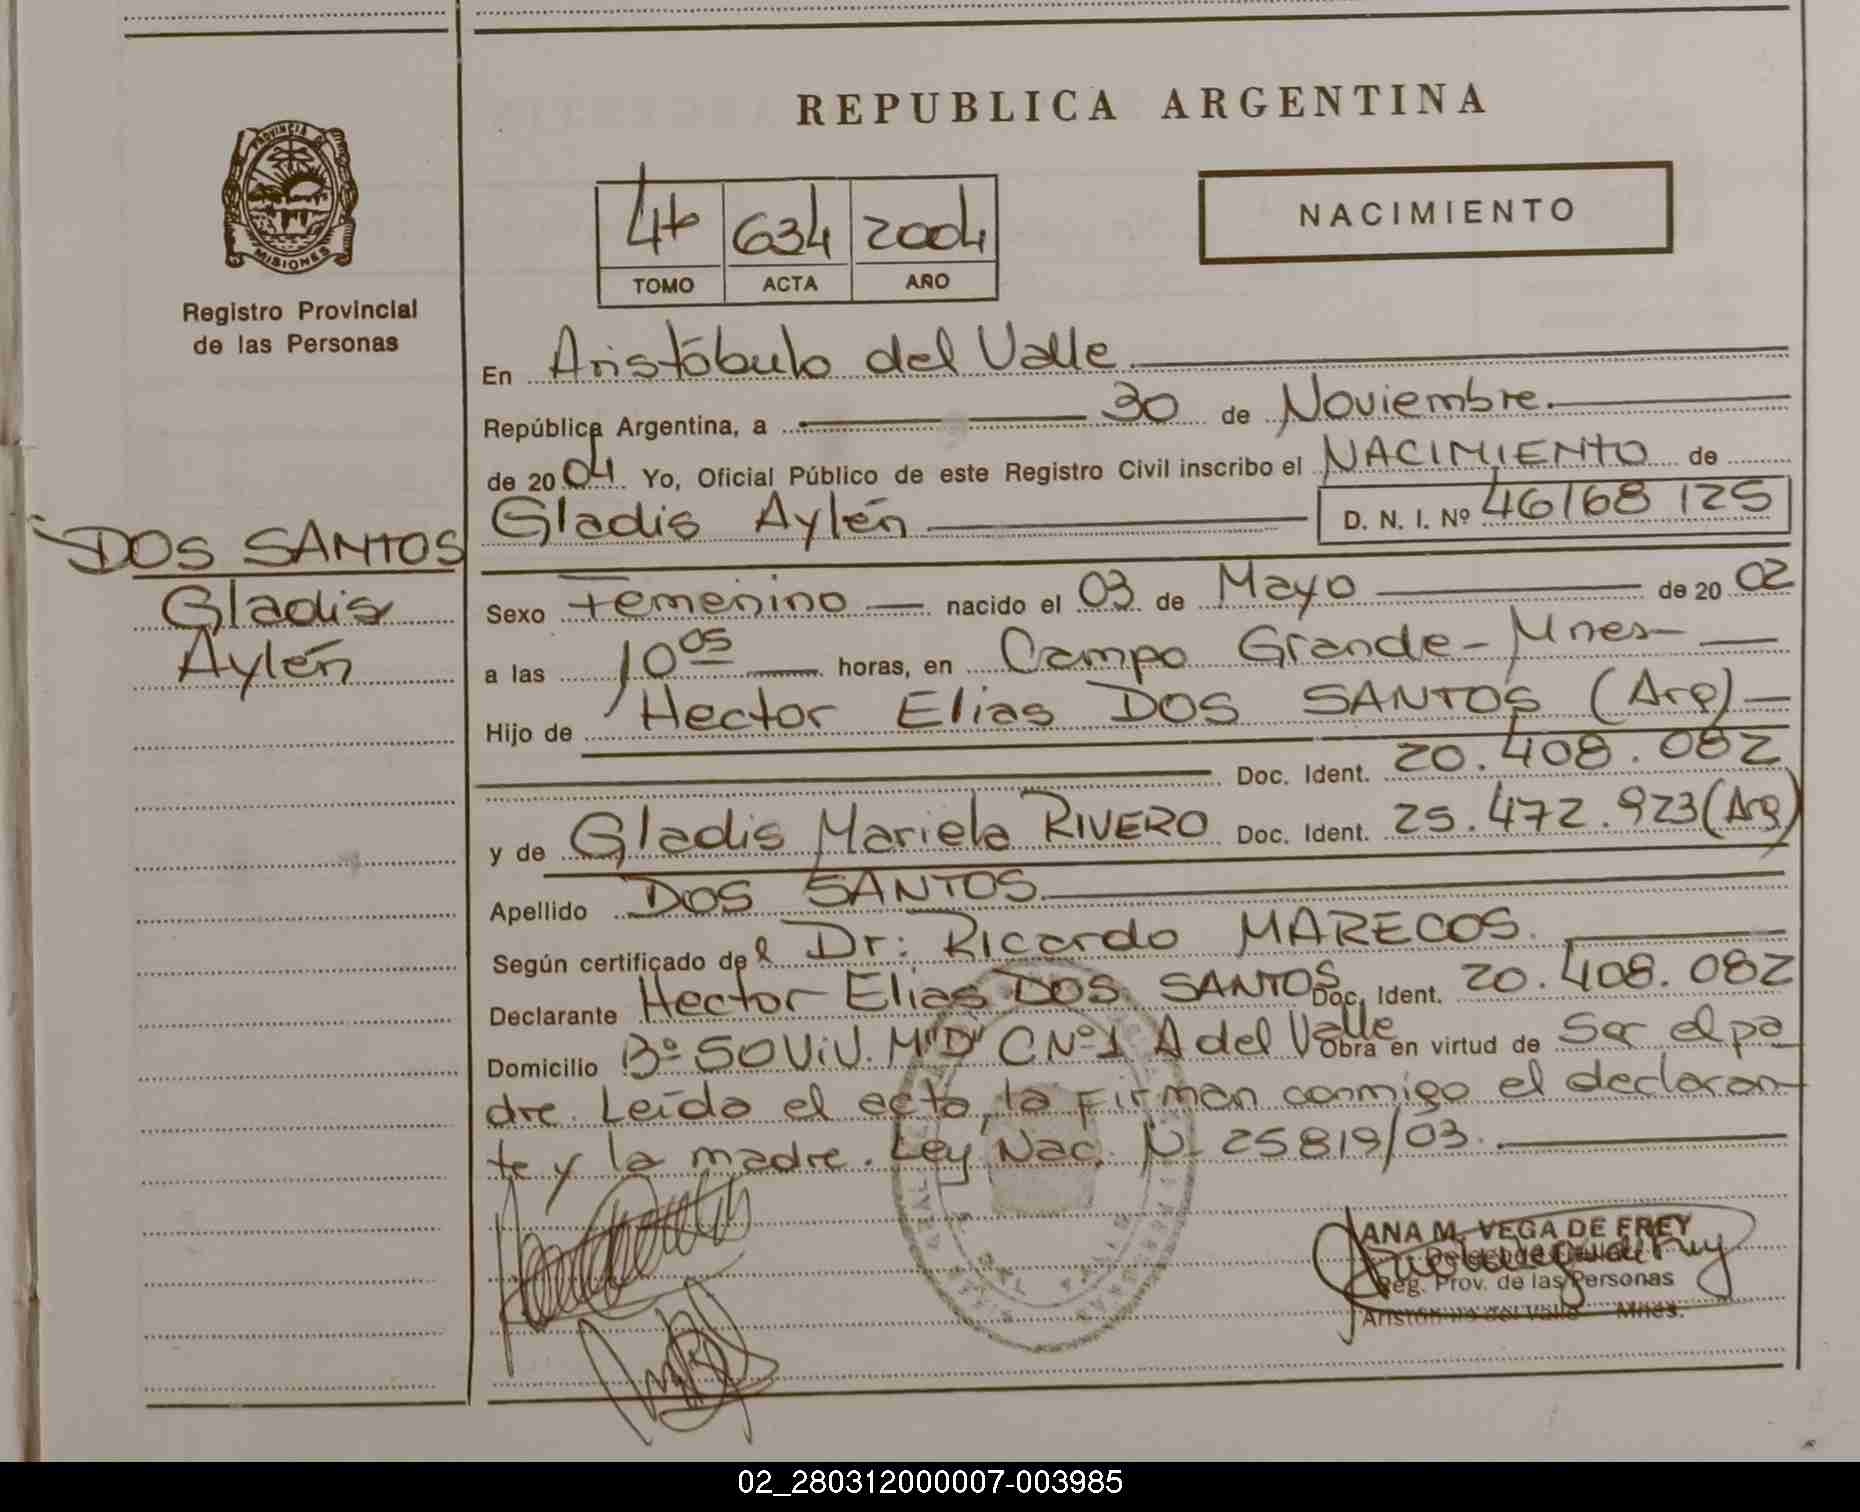 REPUBLICA ARGENTINA
PROVINCIA DE
MISIONES
Registro Provincial
de las Personas
4to 634 2004
TOMO ACTA AÑO
NACIMIENTO
En Aristóbulo del Valle
República Argentina, a 30 de Noviembre.
de 2004 Yo, Oficial Público de este Registro Civil inscribo el NACIMIENTO de
Gladis Aylén D. N. I. Nº 46168 125
DOS SANTOS
Gladis
Aylén
Sexo Femenino nacido el 03 de Mayo de 20 02
a las 10 05 horas, en Campo Grande - Mnes-
Hijo de Hector Elias DOS SANTOS (Arg)
Doc. Ident. 20.408.082
y de Gladis Mariela RIVERO Doc. Ident. 25.472.923 (Arg)
Apellido DOS SANTOS
Según certificado del Dr: Ricardo MARECOS.
Declarante Hector Elias DOS SANTOS Doc. Ident. 20.408.082
Domicilio Bº 50 ViV. M"D" C Nº1 A del Valle Obra en virtud de Ser el pa
dre. Leída el acta, la Firman conmigo el declaran-
te y la madre. Ley Nac. N 25819/03.
ANA M. VEGA DE FREY
Reg. Prov. de las Personas
Aristóbulo del Valle Mnes.
02_280312000007-003985